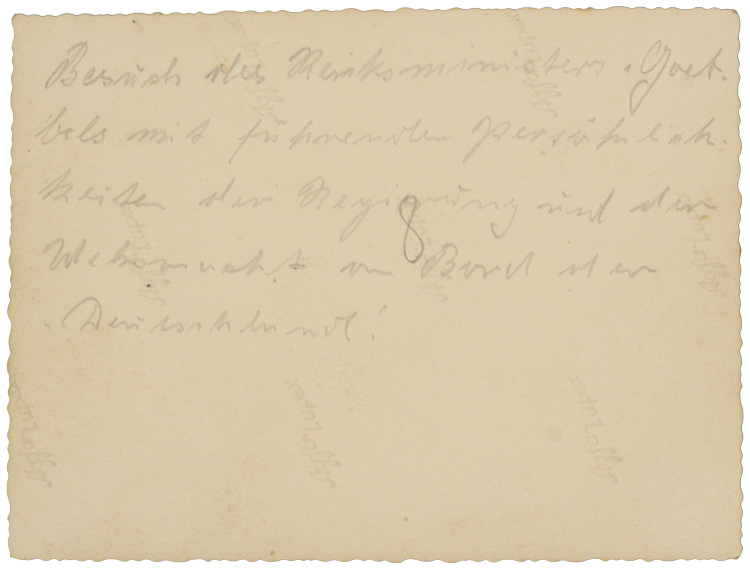 Besuch des Reichsministers Goeb-
bels mit führenden Persönlich-
keiten der Regierung und der
8
Wehrmacht an Bord der
„Deutschland".